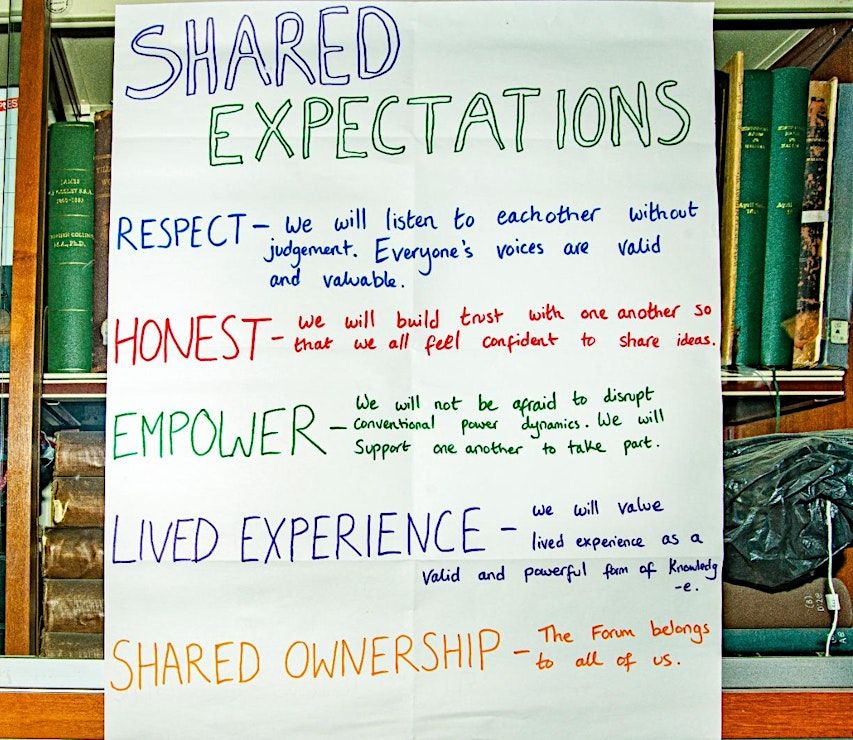 SHARED
EXPECTATIONS
RESPECT - We will listen to eachother without
judgement. Everyone's voices are valid
and valuable.
HONEST - We will build trust with one another so
that we all feel confident to share ideas.
EMPOWER - We will not be afraid to disrupt
conventional power dynamics. We will
Support one another to take part.
LIVED EXPERIENCE - We will value
lived experience as a
valid and powerful form of Knowledg
-e.
SHARED OWNERSHIP - The Forum belongs
to all of us.
JAMES